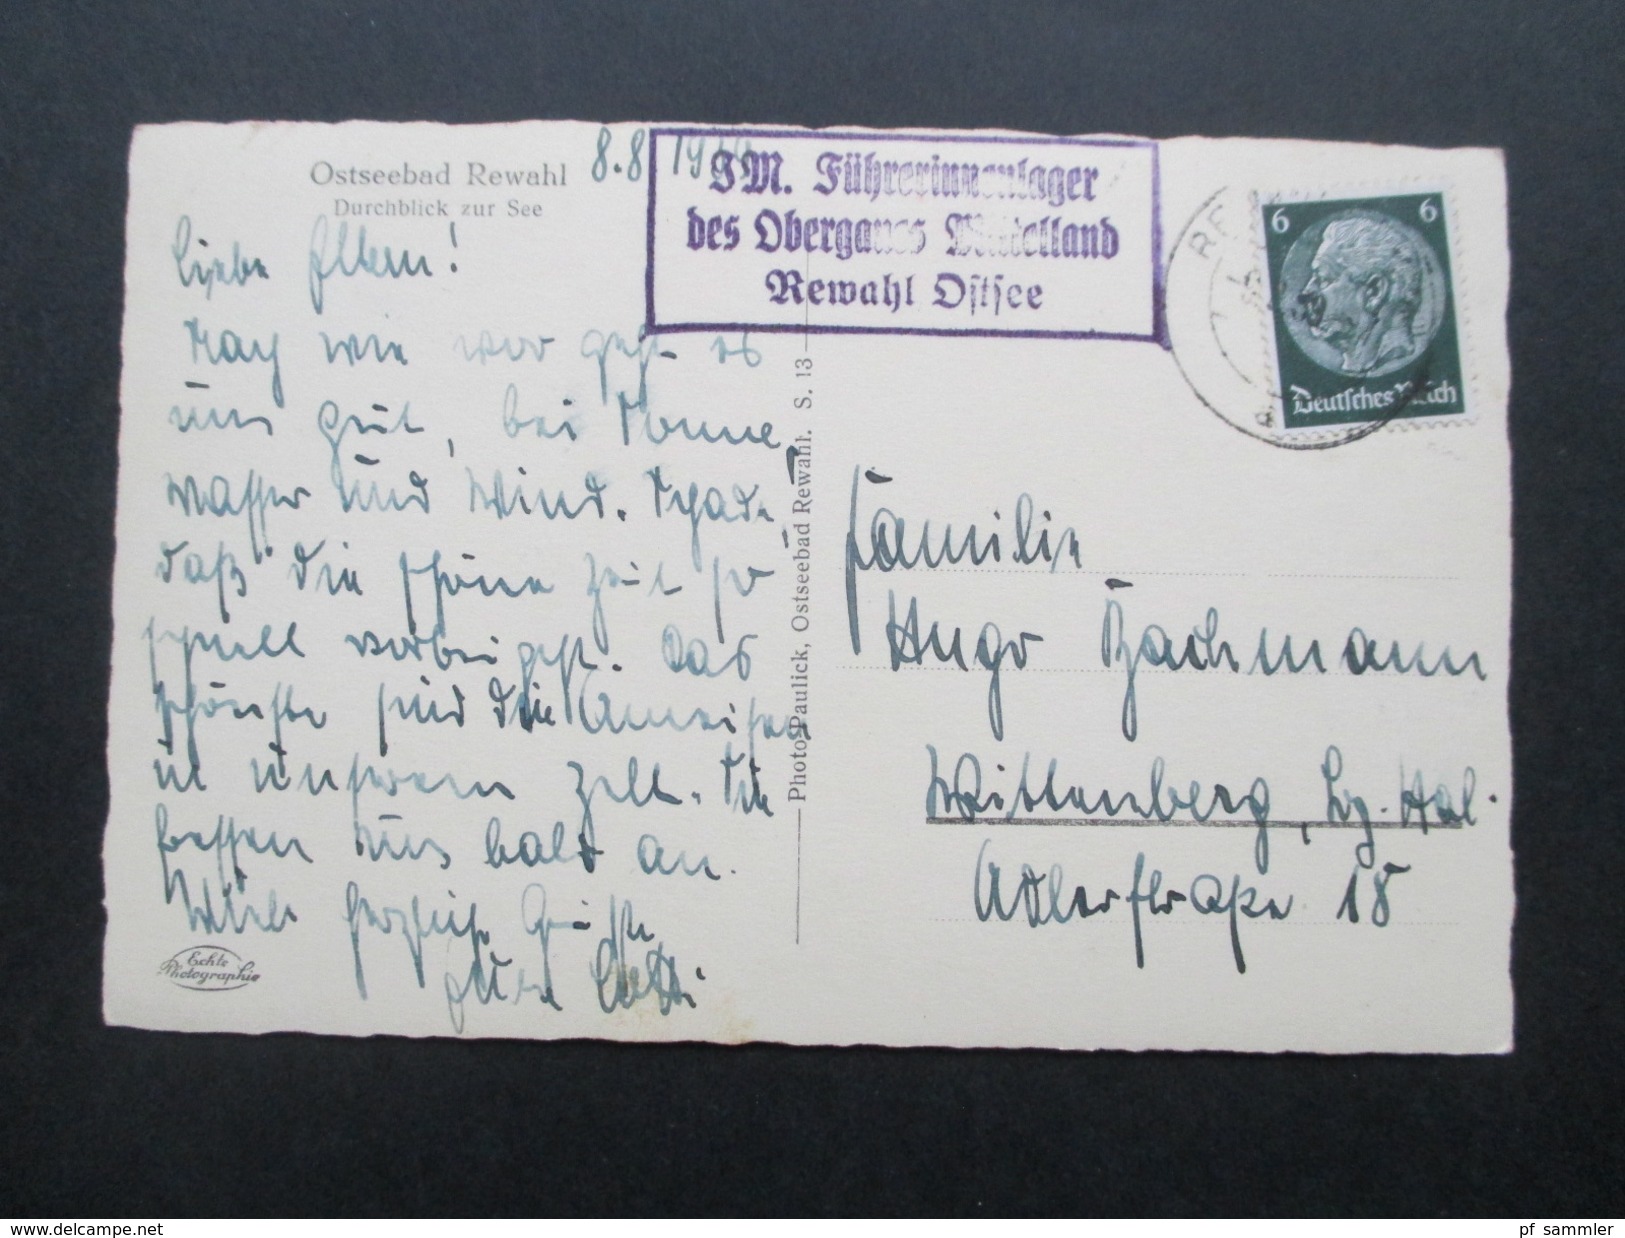 Ostseebad Rewahl
Durchblick zur See
8.8
JM. Führerinnenlager
des Obergaues Mittelland
Rewahl Ostsee
6 6
Deutsches Reich
Liebe Eltern!
Nach wie vor geht es
uns gut, bei Sonne,
Wasser und Wind. Schade,
daß die schöne Zeit so
schnell vorbeigeht. Das
schönste sind die Ameisen
in unserem Zelt. Die
fressen uns bald an.
Viele herzliche Grüße
Eure Lotti
Echte
Photographie
Photo-Paulick, Ostseebad Rewahl. S. 13
Familie
Hugo Bachmann
Wittenberg, Bz. Hal.
Adlerstraße 18
www.delcampe.net
pf_sammler